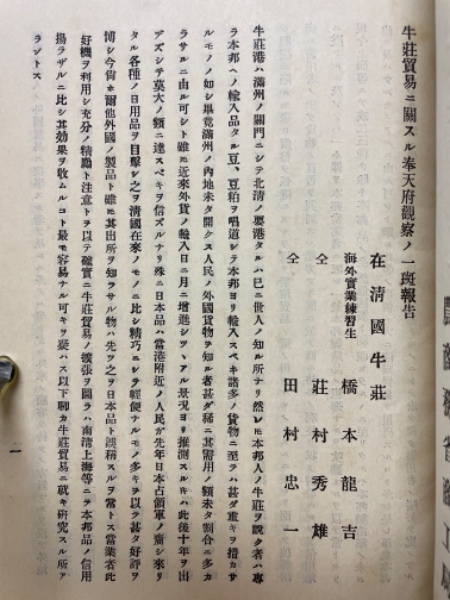 牛莊貿易ニ關スル奉天府觀察ノ一斑報告
在清國牛莊
海外實業練習生 橋本龍吉
仝 莊村秀雄
仝 田村忠一
牛莊港ハ滿州ノ關門ニシテ北清ノ要港タルハ已ニ世人ノ知ル所ナリ然レ𪜈本邦人ノ牛莊ヲ說ク者ハ專
ラ本邦ヘノ輸入品タル豆、豆粕ヲ唱道シテ本邦ヨリ輸入スベキ諸多ノ貨物ニ至テハ甚ダ重キヲ措カサ
ルモノヽ如シ畢竟滿州ノ內地未タ開クス人民ノ外國貨物ヲ知ル者甚ダ稀ニ其需用ノ額未タ割合ニ多カ
ラサルニ由ル可シト雖𪜈近來外貨ノ輸入日ニ月ニ增進シツヽアル景況ヨリ推測スルキハ此後十年ヲ出
アズシテ莫大ノ額ニ達スベキヲ信ズルナリ殊ニ日本品ハ當港附近ノ人民ガ先年日本占領軍ノ齎シ來リ
タル各種ノ日用品ヲ目擊シ之ヲ清國在來ノモノニ比シ精巧ニシテ輕便ナルモノ多キヲ以テ甚タ好評ヲ
博シ今尙ホ爾他外國ノ製品ト雖𪜈其出所ヲ知ラサル物ハ先ツ之ヲ日本品ト誤稱スルヲ常トス當業者此
好機ヲ利用シ充分ノ精勵ト注意トヲ以テ確實ニ牛莊貿易ノ擴張ヲ圖ラハ南清上海等ニテ本邦品ノ信用
揚ラザルニ比シ其効果ヲ收ムルコト最モ容易ナル可キヲ疑ハス以下聊カ牛莊貿易ニ就キ研究スル所ア
ラントス
一